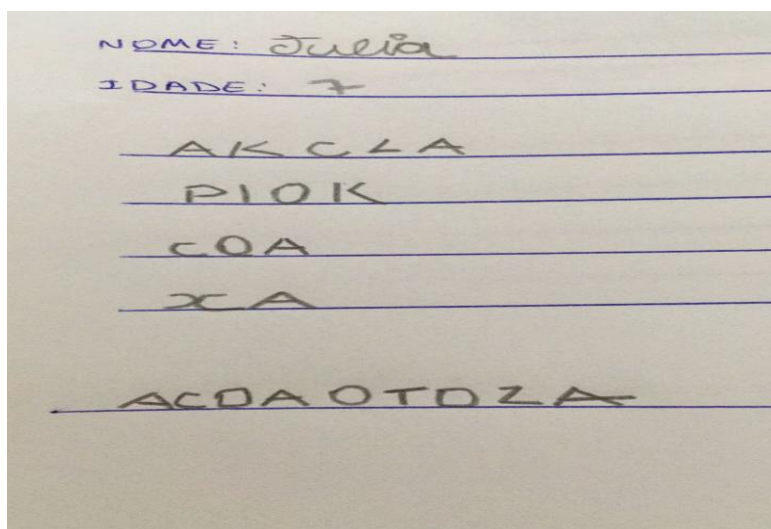 NOME: Julia
IDADE: 7
AKCLA
PIOK
COA
XA
ACDAOTDZA